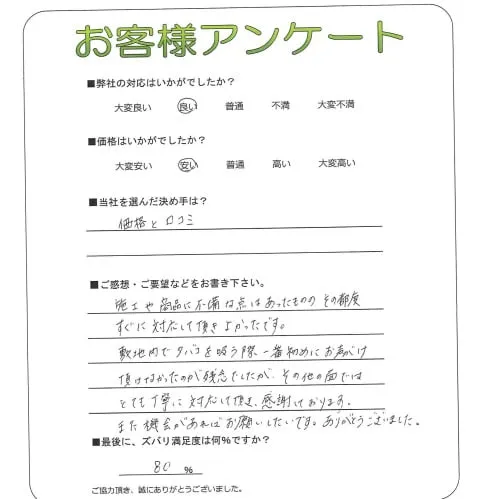 お客様アンケート
■弊社の対応はいかがでしたか？
大変良い 良い 普通 不満 大変不満
■価格はいかがでしたか？
大変安い 安い 普通 高い 大変高い
■当社を選んだ決め手は？
価格と口コミ
■ご感想・ご要望などをお書き下さい。
施工や商品に不備な点はあったものの その都度
すぐに対応して頂きよかったです。
敷地内でタバコを吸う際、一番初めにお声がけ
頂けなかったのが残念でしたが、その他の面では
とても丁寧に対応して頂き、感謝しております。
また機会があればお願いしたいです。ありがとうございました。
■最後に、ズバリ満足度は何%ですか？
80 %
ご協力頂き、誠にありがとうございました。